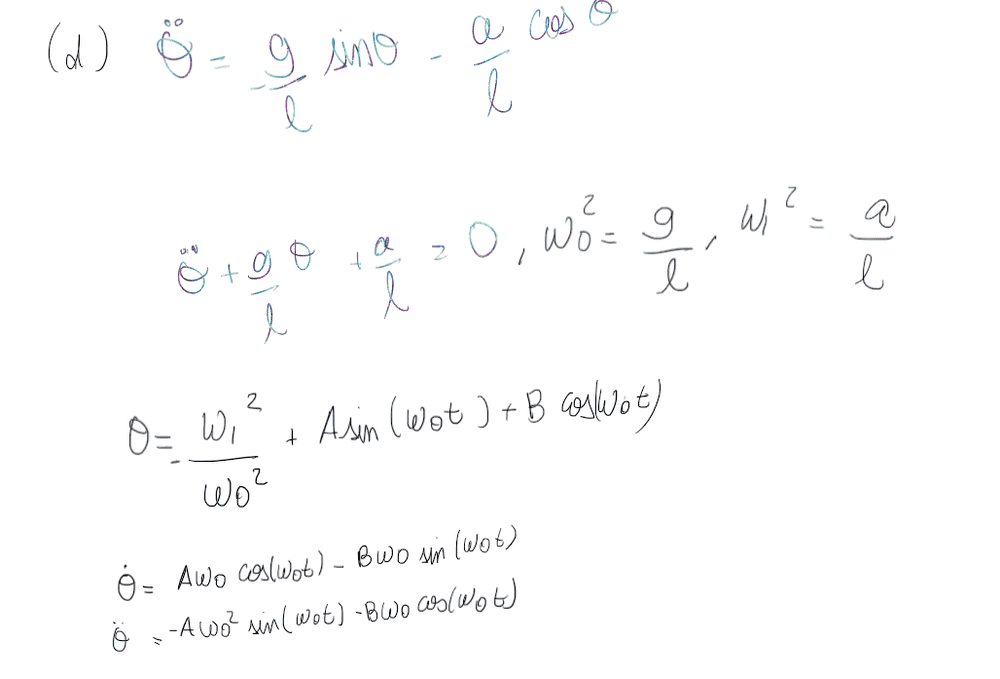 (d) θ̈ = -g/l sinθ - a/l cos θ
θ̈ + g/l θ + a/l = 0, ω0² = g/l, ω1² = a/l
θ = -ω1²/ω0² + A sin(ω0t) + B cos(ω0t)
θ̇ = Aω0 cos(ω0t) - Bω0 sin(ω0t)
θ̈ = -Aω0² sin(ω0t) - Bω0 cos(ω0t)